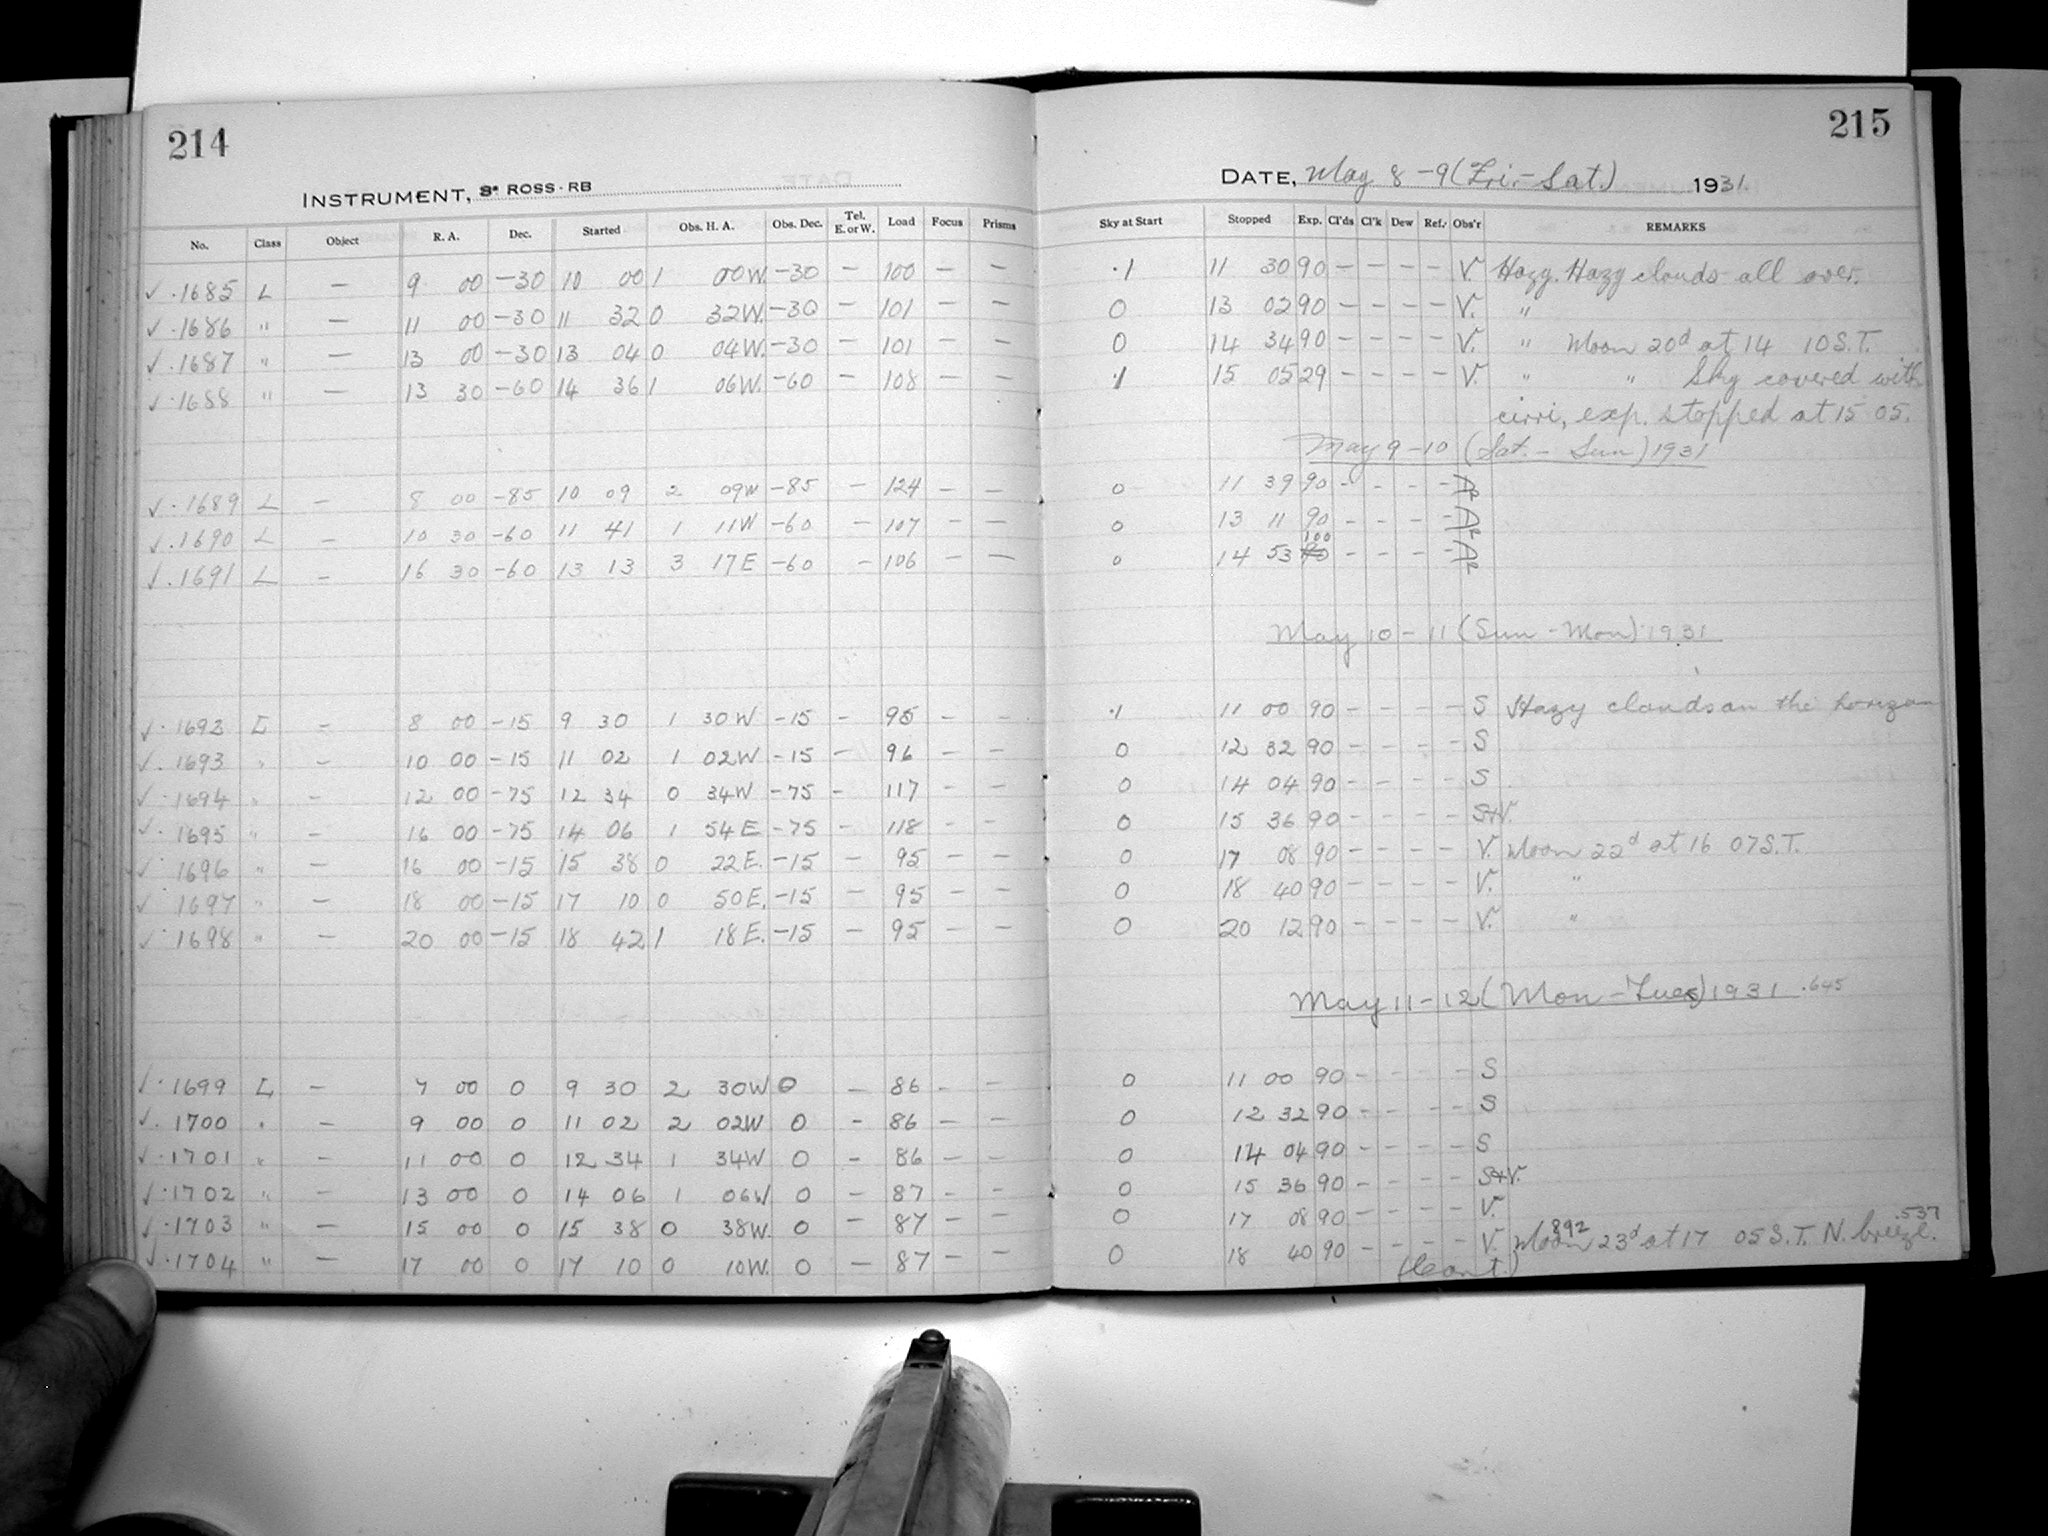 214
INSTRUMENT, 3" ROSS-RB
No. Class Object R. A. Dec. Started Obs. H. A. Obs. Dec. Tel. E. or W. Load Focus Prisms
✓ · 1685 L — 9 00 -30 10 00 1 00W -30 — 100 — —
✓ · 1686 " — 11 00 -30 11 32 0 32W. -30 — 101 — —
✓ · 1687 " — 13 00 -30 13 04 0 04W. -30 — 101 — —
✓ · 1688 " — 13 30 -60 14 36 1 06W. -60 — 108 — —
✓ · 1689 L — 8 00 -85 10 09 2 09W -85 — 124 — —
✓ · 1690 L — 10 30 -60 11 41 1 11W -60 — 107 — —
✓ · 1691 L — 16 30 -60 13 13 3 17E -60 — 106 — —
✓ · 1692 L — 8 00 -15 9 30 1 30W -15 — 95 — —
✓ · 1693 " — 10 00 -15 11 02 1 02W -15 — 96 — —
✓ · 1694 " — 12 00 -75 12 34 0 34W -75 — 117 — —
✓ · 1695 " — 16 00 -75 14 06 1 54E -75 — 118 — —
✓ · 1696 " — 16 00 -15 15 38 0 22E. -15 — 95 — —
✓ · 1697 " — 18 00 -15 17 10 0 50E. -15 — 95 — —
✓ · 1698 " — 20 00 -15 18 42 1 18E. -15 — 95 — —
✓ · 1699 L — 7 00 0 9 30 2 30W 0 — 86 — —
✓ · 1700 " — 9 00 0 11 02 2 02W 0 — 86 — —
✓ · 1701 " — 11 00 0 12 34 1 34W 0 — 86 — —
✓ · 1702 " — 13 00 0 14 06 1 06W 0 — 87 — —
✓ · 1703 " — 15 00 0 15 38 0 38W. 0 — 87 — —
✓ · 1704 " — 17 00 0 17 10 0 10W. 0 — 87 — —
215
DATE, May 8-9 (Fri.-Sat.) 1931.
Sky at Start Stopped Exp. Cl'ds Cl'k Dew Ref. Obs'r REMARKS
.1 11 30 90 — — — — V. Hazy. Hazy clouds all over.
0 13 02 90 — — — — V. "
0 14 34 90 — — — — V. " Moon 20d at 14 10 S.T.
.1 15 05 29 — — — — V. " " Sky covered with
cirri, exp. stopped at 15 05.
May 9-10 (Sat.- Sun) 1931
0 11 39 90 - - - -
0 13 11 90 - - - -
0 14 53 100 90 - - - -
May 10-11 (Sun-Mon) 1931
.1 11 00 90 - - - - S Hazy clouds on the horizon
0 12 32 90 - - - - S
0 14 04 90 - - - - S
0 15 36 90 - - - - S+V.
0 17 08 90 - - - - V. Moon 22d at 16 07 S.T.
0 18 40 90 - - - - V. "
0 20 12 90 - - - - V. "
May 11-12 (Mon-Tues) 1931 .645
0 11 00 90 - - - - S
0 12 32 90 - - - - S
0 14 04 90 - - - - S
0 15 36 90 - - - - S+V.
0 17 08 90 - - - - V.
892 .537
0 18 40 90 - - - - V. Moon 23d at 17 05 S.T. N. breeze.
(Cont.)